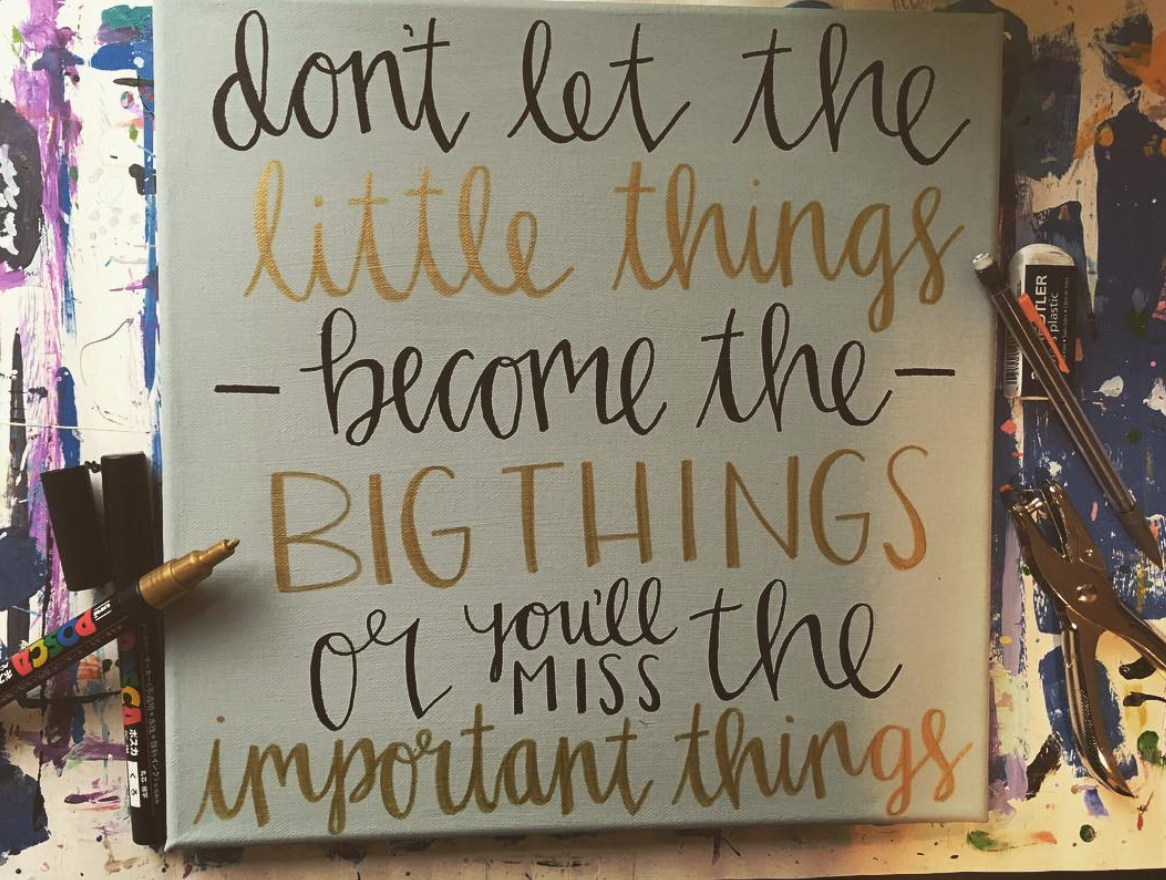 don't let the
little things
– become the –
BIG THINGS
or you'll MISS the
important things
POSCA
ポスカ
plastic